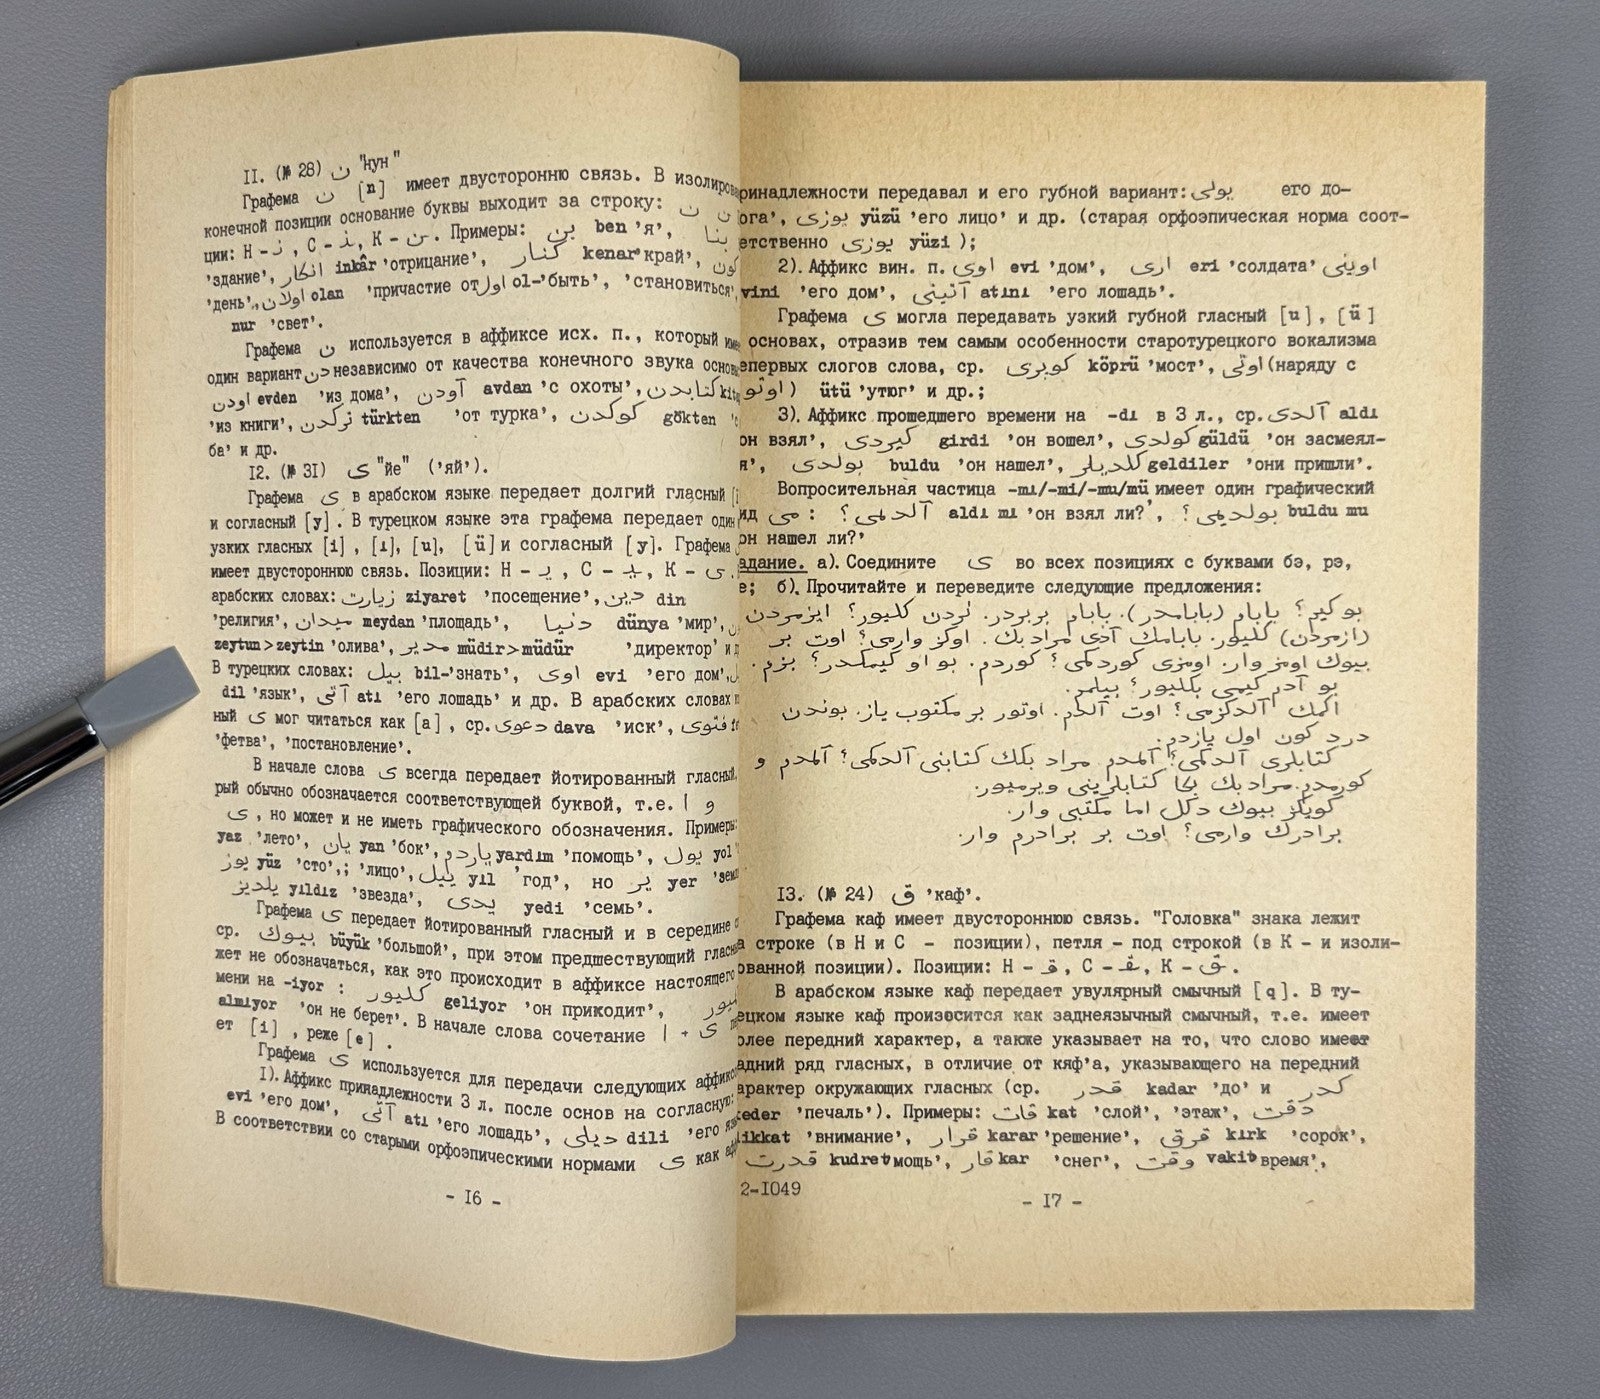 II. (№ 28) ن "нун"
Графема ن [n] имеет двусторонню связь. В изолирова
конечной позиции основание буквы выходит за строку: ن ن
ции: Н - ﻧ , С - ﻨ , К - ﻦ . Примеры: بن ben 'я', بنا
'здание', انكار inkâr 'отрицание', كنار kenar 'край', كون
'день', اولان olan 'причастие от اول ol-'быть', 'становиться',
nur 'свет'.
Графема ن используется в аффиксе исх. п., который име
один вариант دن независимо от качества конечного звука основы
اودن evden 'из дома', آودن avdan 'с охоты', كتابدن kit
'из книги', تركدن türkten 'от турка', كوكدن gökten 'с
ба' и др.
I2. (№ 3I) ى "йе" ('яй').
Графема ى в арабском языке передает долгий гласный [i
и согласный [y]. В турецком языке эта графема передает один
узких гласных [i] , [ı], [u], [ü] и согласный [y]. Графема
имеет двустороннюю связь. Позиции: Н - ﻳ , С - ﻴ , К - ى .
арабских словах: زيارت ziyaret 'посещение', دين din
'религия', ميدان meydan 'площадь', دنيا dünya 'мир',
zeytun>zeytin 'олива', مدير müdir>müdür 'директор' и д
В турецких словах: بيل bil-'знать', اوى evi 'его дом',
dil 'язык', آتى atı 'его лошадь' и др. В арабских словах
ный ى мог читаться как [a] , ср. دعوى dava 'иск', فتوى
'фетва', 'постановление'.
В начале слова ى всегда передает йотированный гласный,
рый обычно обозначается соответствующей буквой, т.е. ا و
ى , но может и не иметь графического обозначения. Примеры:
yaz 'лето', يان yan 'бок', ياردم yardım 'помощь', يول yol
يوز yüz 'сто',; 'лицо', ييل yıl 'год', но ير yer 'земл
يلديز yıldız 'звезда', يدى yedi 'семь'.
Графема ى передает йотированный гласный и в середине с
ср. بيوك büyük 'большой', при этом предшествующий гласн
жет не обозначаться, как это происходит в аффиксе настоящего
мени на -iyor : كليور geliyor 'он приходит',
almıyor 'он не берет'. В начале слова сочетание ا + ى пе
ет [i] , реже [e] .
Графема ى используется для передачи следующих аффиксо
I). Аффикс принадлежности 3 л. после основ на согласную:
evi 'его дом', آتى atı 'его лошадь', ديلى dili 'его яз
В соответствии со старыми орфоэпическими нормами ى как аф
- I6 -
ринадлежности передавал и его губной вариант: يولى его до-
ога', يوزى yüzü 'его лицо' и др. (старая орфоэпическая норма соот-
етственно يوزى yüzi );
2). Аффикс вин. п. اوى evi 'дом', ارى eri 'солдата' اوينى
vini 'его дом', آتينى atını 'его лошадь'.
Графема ى могла передавать узкий губной гласный [u] , [ü]
основах, отразив тем самым особенности старотурецкого вокализма
епервых слогов слова, ср. كوپرى köprü 'мост', اوتى (наряду с
اوتو ) ütü 'утюг' и др.;
3). Аффикс прошедшего времени на -dı в 3 л., ср. آلدى aldı
он взял', كيردى girdi 'он вошел', كولدى güldü 'он засмеял-
я', بولدى buldu 'он нашел', كلديلر geldiler 'они пришли'.
Вопросительная частица -mı/-mi/-mu/mü имеет один графический
ид مى : آلدمى؟ aldı mı 'он взял ли?', بولديمى؟ buldu mu
он нашел ли?'
адание. а). Соедините ى во всех позициях с буквами бэ, рэ,
е; б). Прочитайте и переведите следующие предложения:
بو كير؟ بابام (بابامدر). بابام بربردر. نردن كليور؟ ايزمردن
(ازمردن) كليور. بابامك آدى مراد بك. اوكز وارمى؟ اوت بر
بيوك اومز وار. اومزى كوردكمى؟ كوردم. بو او كيمكدر؟ بزم.
بو آدم كيمى بكليور؟ بيلمم.
اكمك آلدكزمى؟ اوت آلدم. اوتور بر مكتوب ياز. بوندن
درد كون اول يازدم.
كتابلرى آلدكمى؟ آلمدم. مراد بلك كتابنى آلدكمى؟ آلمدم و
كورمدم. مراد بك بكا كتابلرينى ويرميور.
كويكز بيوك دكل اما مكتبى وار.
برادرك وارمى؟ اوت بر برادرم وار.
I3. (№ 24) ق 'каф'.
Графема каф имеет двустороннюю связь. "Головка" знака лежит
а строке (в Н и С - позиции), петля - под строкой (в К - и изоли-
ованной позиции). Позиции: Н - ﻗ , С - ﻘ , К - ﻖ .
В арабском языке каф передает увулярный смычный [q]. В ту-
ецком языке каф произносится как заднеязычный смычный, т.е. имеет
олее передний характер, а также указывает на то, что слово имеет
адний ряд гласных, в отличие от кяф'а, указывающего на передний
арактер окружающих гласных (ср. قدر kadar 'до' и كدر
keder 'печаль'). Примеры: قات kat 'слой', 'этаж', دقت
ikkat 'внимание', قرار karar 'решение', قرق kırk 'сорок',
قدرت kudret мощь', قار kar 'снег', وقت vakit время',
2-I049
- I7 -